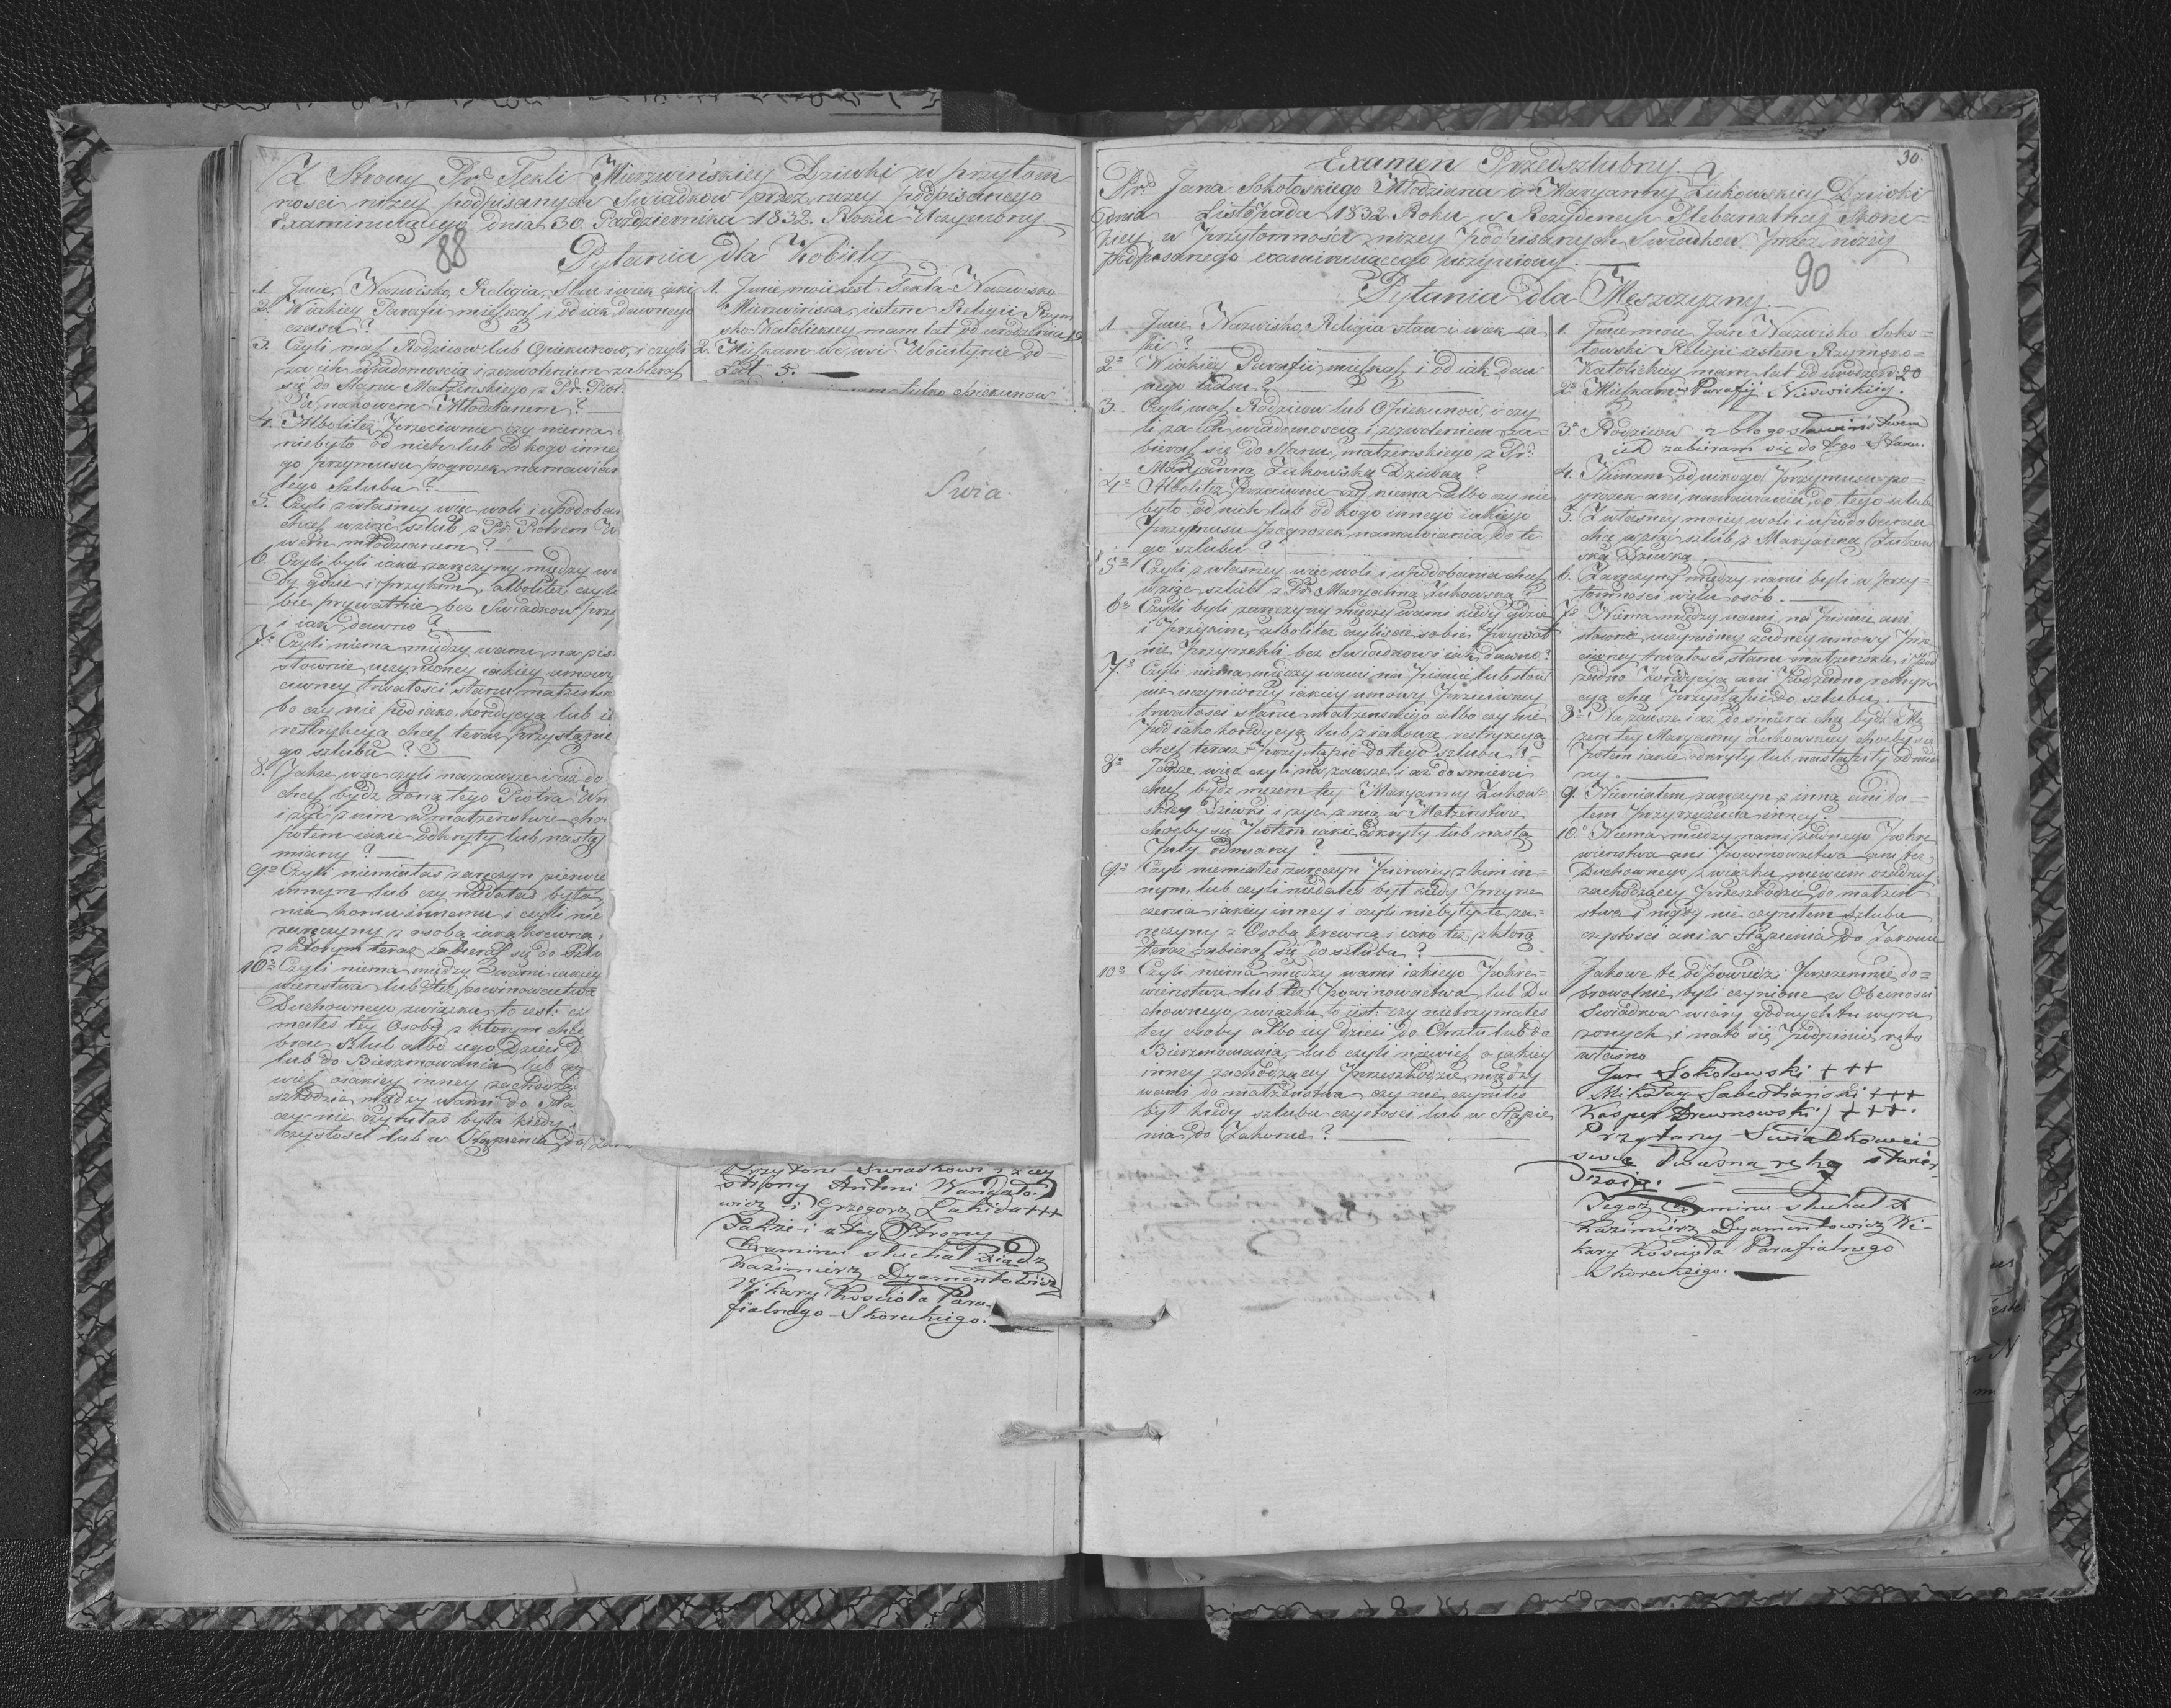 Z Strony Pr: Tekli Mierzwińskiey Dziwki w przytom
nosci niżey podpisanych Swiadkow przez niżey podpisanego
Examinuiącego dnia 30. Października 1832. Roku Uczyniony
88
Pytania dla Kobiety
1. Jmie, Nazwisko, Religia, Stan i wiek iaki
2. W iakiey Parafii mięszkasz i od iak dawnego
czasu?
3. Czyli masz Rodzicow lub Opiekunow, i czyli
za ich wiadomoscią i zezwoleniem zabierasz
się do Stanu Małżenskiego z Pr: Piotr
nakowem Młodzianem?
4. Alboliteż przeciwnie czy niema
niebyło od nich lub od kogo inne
go przymusu pogrozek namawian
tego Szlubu?
5. Czyli z własney więc woli i upodoban
chcesz wziąść szlub z Pr: Piotrem W
wem młodzianem?
6. Czyli byli iakie zaręczyny między wa
dy gdzie i przykim, alboliteż czyli
bie prywatnie bez Swiadkow przy
i iak dawno?
7. Czyli niema między wami na pis
słownie uczynioney iakiey umowy
ciwney trwałosci stanu małzensk
bo czy nie pod iako kondycyą lub ia
restrykcyą chcesz teraz przystąpic
go szlubu?
8. Jakze więc czyli nazawsze i aż do
chcesz bydz Zoną tego Piotra Wn
i żyć z nim w małzenstwie cho
potem iakie odkryły lub nastąp
miany?
9. Czyli niemiałas zaręczyn pierwie
innym lub czy niedałas była
nia komu innemu i czyli nie
zaręczyny z osobą iaką krewną,
z ktorym teraz zabierasz się do Szlu
10. Czyli niema między wami iakiey
wienstwa lub też powinowactwa
Duchownego związku to iest: cz
małes tey Osoby z ktorym chce
brac szlub albo iego Dzieci d
lub do Bierzmowania lub cz
wiesz o iakiey inney zachodzą
szkodzie między wami do Ma
czy nie czyniłas była kiedy
czystosci lub w Stąpienia do Zam
1. Jmie moie iest Tekla Nazwisko
Mierzwińska, iestem Religii Rzym
sko-Katolickiey mam lat od urodzenia 19
2. Mięszkam we wsi Wointynie od
Lat 5.
tylko Opiekunow
Swia.
Przytoni Swiadkowi z tey
strony Antoni
wicz i Grzegorz Łahida +++
Jakże i z tey Strony
Examinu słuchał Xiądz
Kazimierz Dyamentowicz
Wikary Kosciola Para-
fialnego Skoruckiego.
30.
Examen Przedszlubny
Pr: Jana Sokołoskiego Młodziana i Maryanny Zukowskiey Dziwki
dnia Listopada 1832 Roku w Rezydencyi Plebanalney Skoru-
kiey w przytomności niżey podpisanych Swiadkow przez niżey
podpisanego examinuiącego uczyniony.
90
Pytania dla Męszczyzny
1. Jmie, Nazwisko, Religia stan i wiek ia
ki?
2. W iakiey Parafii mięszkasz i od iak daw
nego czasu?
3. Czyli masz Rodzicow lub Opiekunow, i czy
li za ich wiadomoscią i zezwoleniem za-
bierasz się do Stanu małzenskiego z Pr:
Maryanną Zukowską Dziwką?
4. Alboliteż Przeciwnie czy niema albo czy nie
było od nich lub od kogo innego iakiego
przymusu pogrozek namawiania do te
go szlubu?
5. Czyli z własney więc woli i upodobania chcesz
wziąść szlub z Pr: Maryanną Zukowską?
6. Czyli byli zaręczyny między wami kiedy gdzie
i przykim, alboliteż czyliście sobie Prywat
nie Przyrzekli bez Swiadkow i iak dawno?
7. Czyli niema między wami na Pismie lub słow
nie uczynioney iakiey umowy Przeciwney
trwałosci stanu małzenskiego albo czy nie
Pod iako kondycyą lub z iakową restrykcyą
chcesz teraz Przystąpic do tego szlubu?
8. Jakze więc czyli na zawsze i aż do smierci
chcesz bydz mężem tey Maryanny Zukow-
skiey Dziwki i żyć z nią w Małzenstwie
choćby się potem iakie odkryły lub nastą
piły odmiany?
9. Czyli niemiałes zaręczyn Pierwiey z kim in-
nym, lub czyli niedałes był kiedy przyrze
czenia iakiey inney i czyli niebyły te za-
ręczyny z Osobą krewną i iako też z ktorą
teraz zabierasz się do szlubu?
10. Czyli niema między wami iakiego Pokre-
wienstwa lub też Powinowactwa lub Du
chownego związku to iest: czy nietrzymałes
tey osoby albo iey dzieci do Chrztu lub do
Bierzmowania, lub czyli niewiesz o iakiey
inney zachodzącey przeszkodzie między
wami do małzenstwa czy nie czyniłes
był kiedy szlubu czystosci lub w Stąpie
nia do Zakonu?
1. Jmie moie Jan Nazwisko Soko-
łowski Religii iestem Rzymsko-
Katolickiey mam lat od urodzen: 20
2. Mięszkam w Parafij Nieswickiey.
3. Rodzicow z błogosławieństwem
ich zabieram się do tego Stanu.
4. Nimam od nikogo Przymusu po-
grozek ani namawiania do tego szlub
5. Z własney moiey woli i upodobania
chcę wziąść szlub z Maryanną Zukow
ską Dziwką
6. Zaręczyny między nami byli w Przy-
tomnosci wielu osób.
7. Niema między nami na Pismie ani
słownie uczynioney zadney umowy Prze
ciwney trwałosci stanu małzenskie. i Pod
zadno kondycyą ani Podzadno restryk
cyą chcę Przystąpic do szlubu.
8. Na zawsze i aż do smierci chcę bydz Mę
zem tey Maryanny Zukowskiey chocby się
Potem iakie odkryły lub nastąpiły odmia
ny.
9. Niemiałem zaręczyn z inną ani da-
łem Przyrzeczenia inney.
10. Niema między nami żadnego Pokre
wienstwa ani Powinowactwa ani też
Duchownego związku niewiem o żadney
zachodzącey Przeszkodzie do małzen
stwa i nigdy nie czyniłem szlubu
czystosci ani w Stąpienia do Zakonu
Jakowe te odpowiedzi Przezemnie do-
browolnie byli czynione w Obecnosci
swiadkow wiary godnych tu wyra
zonych i nato się Podpisuię ręką
własno
Jan Sokołowski +++
Mikołay Sabestianski +++
Kasper Drewnowski +++.
Przytomny Swiadkowie
swoią własną ręką stwier-
dzaią.
Tegoż Examinu słuchał X
Kazimierz Dyamentowicz Wi-
kary Kosciola Parafialnego
Skoruckiego.